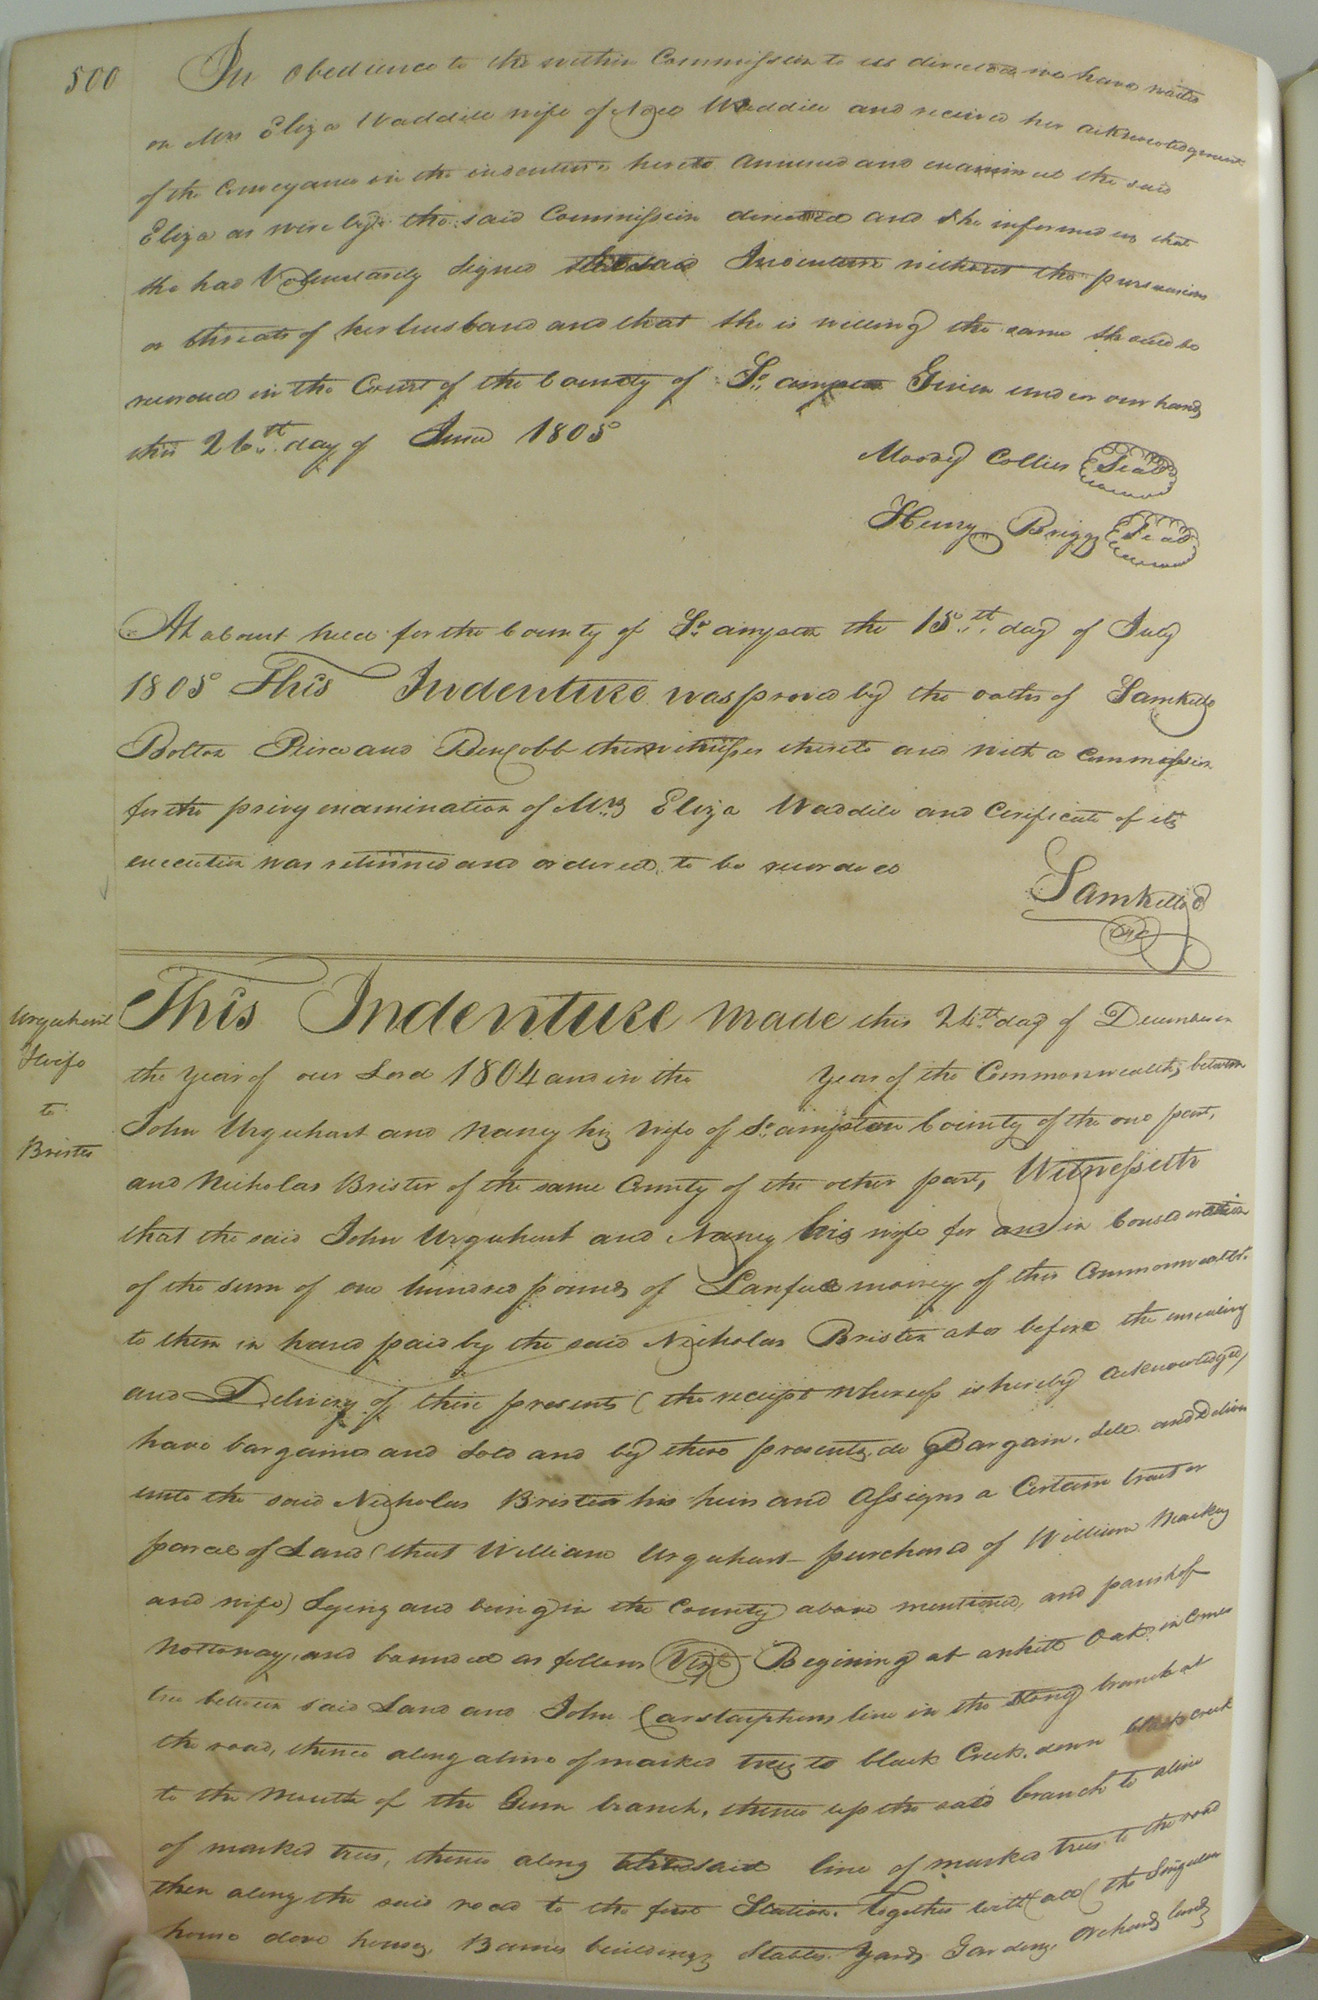 500
In obedience to the within Commission to us directed we have waited
on Mrs Eliza Waddill wife of Noel Waddill and received her acknowledgment
of the Conveyance in the indenture hereto annexed and examined the said
Eliza as were by the said Commission directed and she informed us that
she had Voluntarily Signed the said Indenture without the persuasions
or threats of her husband and that she is willing the same should be
recorded in the Court of the County of So. ampton Given under our hands
this 26th day of June 1805
Moody Collier Seal
Henry Briggs Seal
At a Court held for the County of So. ampton the 15th day of July
1805 This Indenture was proved by the oaths of Saml Kello
Bolton Pierce and Ben Cobb the witnesses thereto and with a Commission
for the privy examination of Mrs Eliza Waddill and Cerificate of its
execution was returned and ordered to be recorded
Saml Kello C
This Indenture made this 24th day of December in
the year of our Lord 1804 and in the Year of the Commonwealth, between
John Urquhart and Nancy his wife of So. ampton County of the one part,
and Nicholas Brister of the same County of the other part, Witnesseth
that the said John Urquhart and Nancy his wife for and in Consideration
of the sum of one hundred pounds of Lawfull money of this Commonwealth
to them in hand paid by the said Nicholas Brister at or before the ensealing
and Delivery of these presents (the receipt whereof is hereby acknowledged)
have bargained and Sold and by these presents do Bargain, Sell and Deliver
unto the said Nicholas Brister his heirs and Assigns a Certain tract or
parcel of Land (that William Urquhart purchased of William Mackey
and wife) Lying and being in the County above mentioned, and parish of
Nottoway, and bounded as follows Viz Begining at a white Oak, in Corner
tree between said Land and John Carstarphens line in the Stony branch at
the road, thence along a line of marked trees to black Creek, down black creek
to the Mouth of the Gum branch, thence up the said branch to a line
of marked trees, thence along the said line of marked trees to the road
then along the said road to the first Station. Together with all (the Singular
home dove houses, Barnes buildings, Stables. Yards, Gardens, Orchards, lands,
Urquhart
& wife
to
Brister